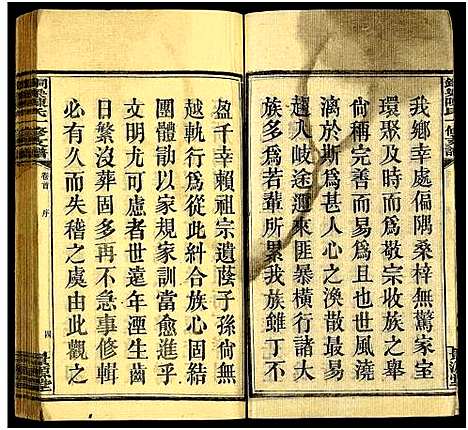 我鄉幸處偏隅桑梓無驚家室
環聚及時而為敬宗收族之舉
尚稱完善而易為也世風澆
漓於斯為甚人心之渙散最易
入岐途邇來匪暴橫行諸大
族房為若輩所累我族雖丁不
盈千幸賴祖宗遺蔭子孫尙無
越軌行為從此糾合族心固結
團體勗以家規家訓當愈進乎
文明尤可慮者世遠年湮生齒
日繁沒葬固多再不急事修輯
必有久而失稽之虞由此觀之
卷首
序
四